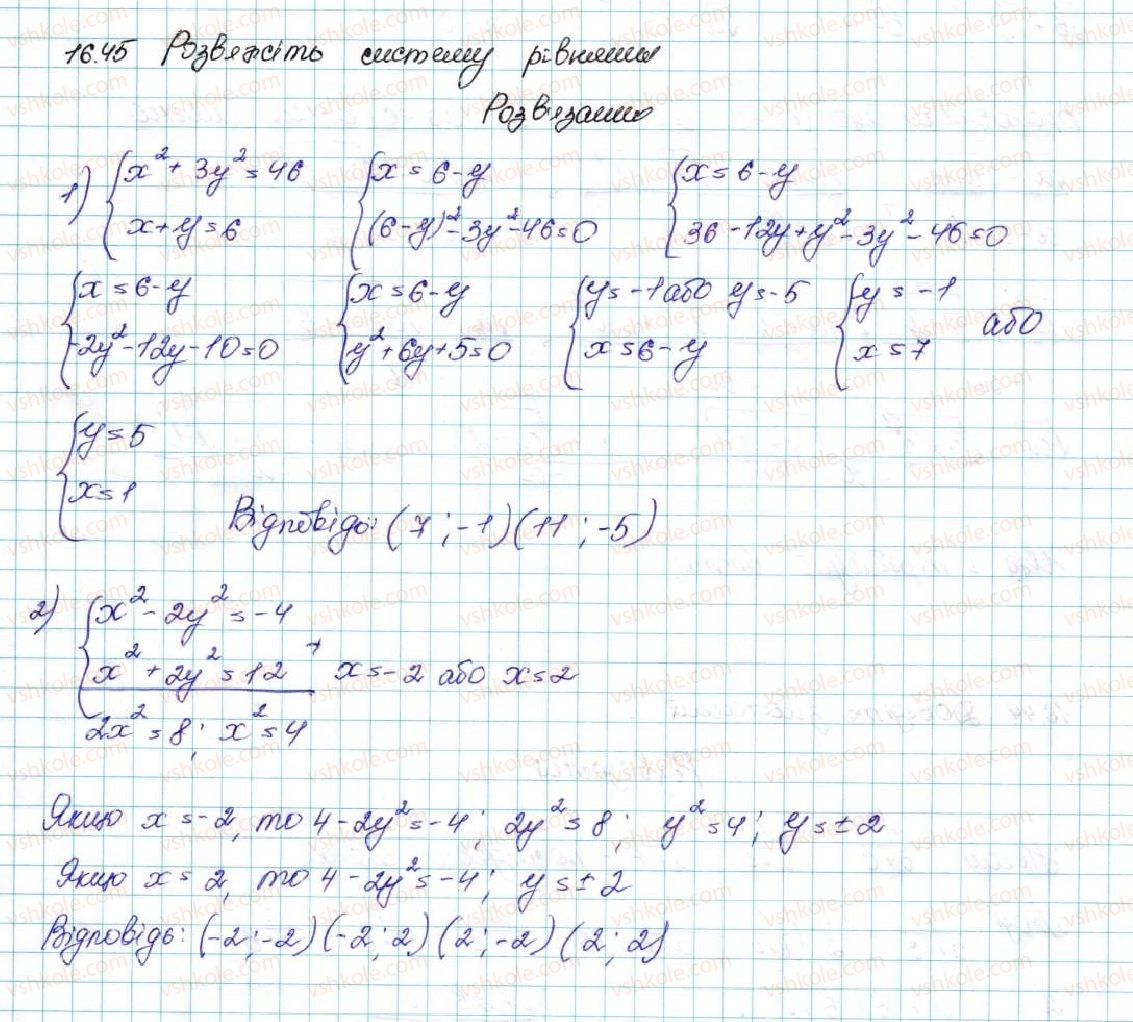 16.45 Розв'яжіть систему рівнянь
Розв'язання
1) { x² + 3y² = 46 { x = 6 - y { x = 6 - y
x + y = 6 (6 - y)² - 3y² - 46 = 0 36 - 12y + y² - 3y² - 46 = 0
{ x = 6 - y { x = 6 - y { y = -1 або y = -5 { y = -1 або
-2y² - 12y - 10 = 0 y² + 6y + 5 = 0 x = 6 - y x = 7
{ y = 5
x = 1
Відповідь: (7 ; -1) (11 ; -5)
2) { x² - 2y² = -4
x² + 2y² = 12 + x = -2 або x = 2
2x² = 8 ; x² = 4
Якщо x = -2, то 4 - 2y² = -4 ; 2y² = 8 ; y² = 4 ; y = ± 2
Якщо x = 2, то 4 - 2y² = -4 ; y = ± 2
Відповідь: (-2 ; -2) (-2 ; 2) (2 ; -2) (2 ; 2)